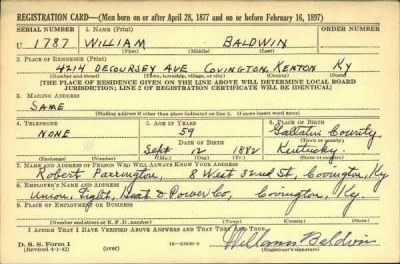 REGISTRATION CARD—(Men born on or after April 28, 1877 and on or before February 16, 1897)
SERIAL NUMBER 1. NAME (Print) ORDER NUMBER
U 1787 WILLIAM BALDWIN
(First) (Middle) (Last)
2. PLACE OF RESIDENCE (Print)
4214 DECOURSEY AVE COVINGTON KENTON KY
(Number and street) (Town, township, village, or city) (County) (State)
[THE PLACE OF RESIDENCE GIVEN ON THE LINE ABOVE WILL DETERMINE LOCAL BOARD
JURISDICTION; LINE 2 OF REGISTRATION CERTIFICATE WILL BE IDENTICAL]
3. MAILING ADDRESS
SAME
[Mailing address if other than place indicated on line 2. If same insert word same]
4. TELEPHONE 5. AGE IN YEARS 6. PLACE OF BIRTH
NONE 59 Gallatin County
(Town or county)
DATE OF BIRTH
Sept 12 1882 Kentucky
(Exchange) (Number) (Mo.) (Day) (Yr.) (State or country)
7. NAME AND ADDRESS OF PERSON WHO WILL ALWAYS KNOW YOUR ADDRESS
Robert 8 West 32nd St, Covington, Ky
8. EMPLOYER'S NAME AND ADDRESS
Union, Light, Heat & Power Co, Covington, Ky.
9. PLACE OF EMPLOYMENT OR BUSINESS
(Number and street or R. F. D. number) (Town) (County) (State)
I AFFIRM THAT I HAVE VERIFIED ABOVE ANSWERS AND THAT THEY ARE TRUE.
D. S. S. Form 1
(Revised 4-1-42) (over) William Baldwin
(Registrant's signature)